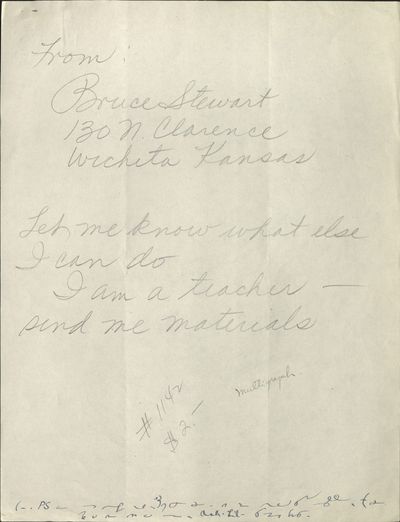 From:
Bruce Stewart
130 N. Clarence
Wichita Kansas
Let me know what else
I can do
I am a teacher —
send me materials
#1142
$2.
Multigraph.
PS